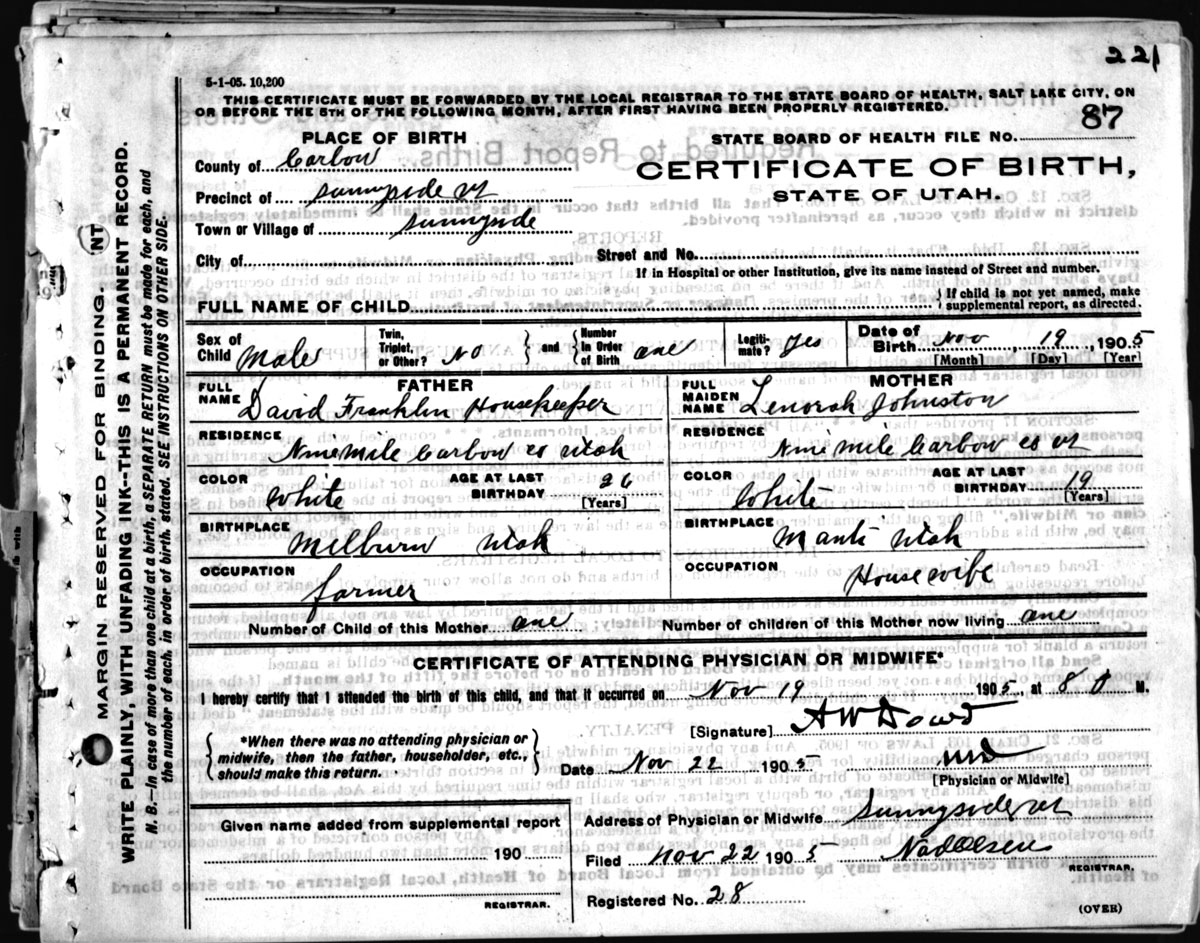 221
5-1-05. 10,200
THIS CERTIFICATE MUST BE FORWARDED BY THE LOCAL REGISTRAR TO THE STATE BOARD OF HEALTH, SALT LAKE CITY, ON
OR BEFORE THE 5TH OF THE FOLLOWING MONTH, AFTER FIRST HAVING BEEN PROPERLY REGISTERED.
PLACE OF BIRTH
STATE BOARD OF HEALTH FILE NO. 87
County of Carbon
CERTIFICATE OF BIRTH,
Precinct of Sunnyside ut
STATE OF UTAH.
Town or Village of Sunnyside
City of
Street and No.
If in Hospital or other Institution, give its name instead of Street and number.
FULL NAME OF CHILD
If child is not yet named, make
supplemental report, as directed.
Sex of Child Male
Twin, Triplet, or Other? No
and Number in Order of Birth one
Legitimate? Yes
Date of Birth Nov 19, 1905
[Month] [Day] [Year]
FATHER
FULL NAME David Franklin Housekeeper
MOTHER
FULL MAIDEN NAME Lenorah Johnston
RESIDENCE Nine Mile Carbon co Utah
RESIDENCE Nine Mile Carbon co ut
COLOR White
AGE AT LAST BIRTHDAY 26 [Years]
COLOR White
AGE AT LAST BIRTHDAY 19 [Years]
BIRTHPLACE Milburn Utah
BIRTHPLACE Manti Utah
OCCUPATION farmer
OCCUPATION Housewife
Number of Child of this Mother one
Number of children of this Mother now living one
CERTIFICATE OF ATTENDING PHYSICIAN OR MIDWIFE*
I hereby certify that I attended the birth of this child, and that it occurred on Nov 19 1905, at 8 M.
*When there was no attending physician or
midwife, then the father, householder, etc.,
should make this return.
[Signature] A W Dowd
Date Nov 22 1905 MD
[Physician or Midwife]
Given name added from supplemental report
190
REGISTRAR.
Address of Physician or Midwife Sunnyside ut
Filed Nov 22 1905
REGISTRAR.
Registered No. 28
(OVER)
MARGIN RESERVED FOR BINDING
WRITE PLAINLY, WITH UNFADING INK--THIS IS A PERMANENT RECORD.
N. B.--In case of more than one child at a birth, a SEPARATE RETURN must be made for each, and
the number of each, in order of birth, stated. SEE INSTRUCTIONS ON OTHER SIDE.